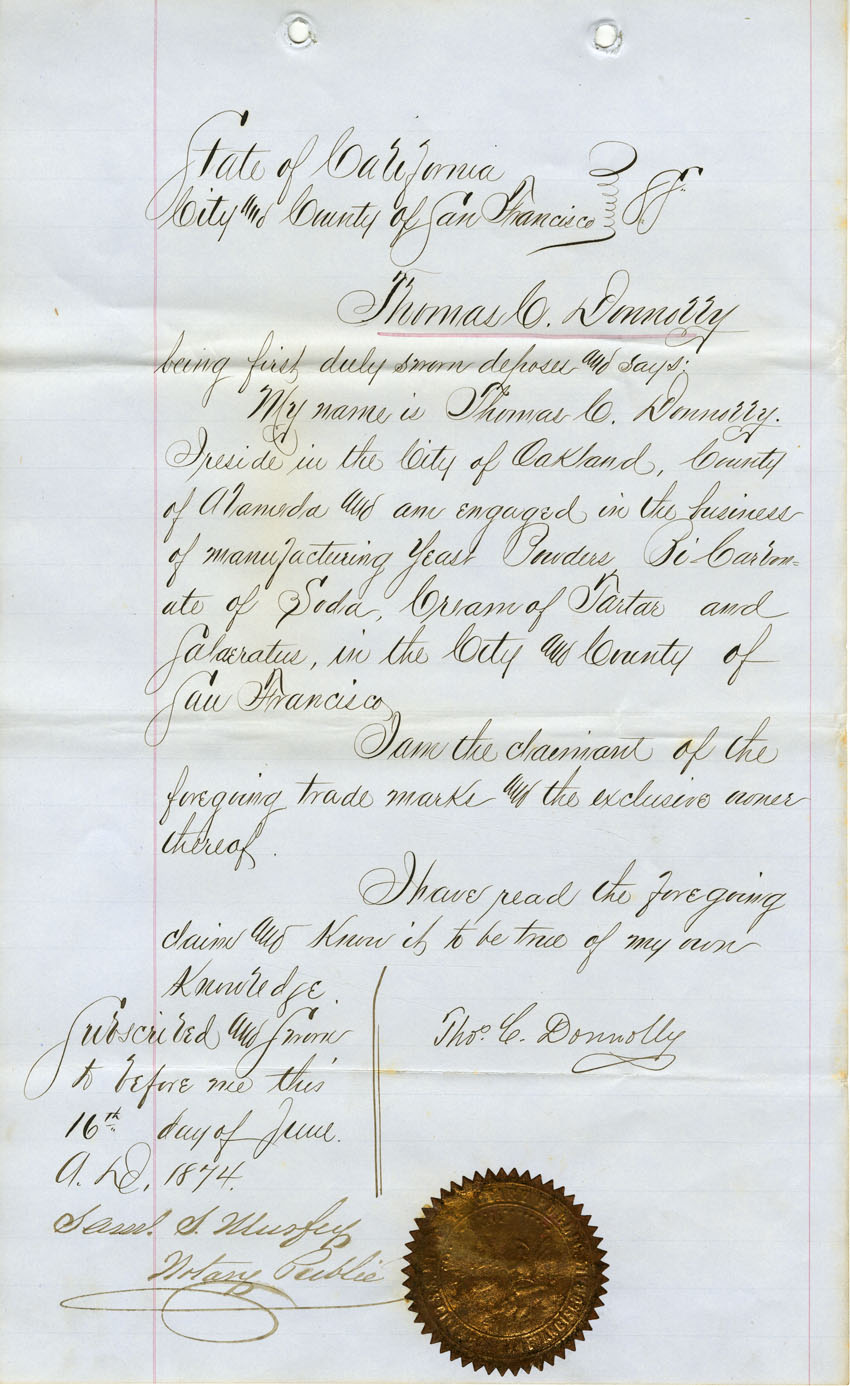 State of California
City and County of San Francisco } ss.
Thomas C. Donnolly
being first duly sworn deposes and says:
My name is Thomas C. Donnolly.
I reside in the City of Oakland, County
of Alameda and am engaged in the business
of manufacturing Yeast Powders, Bi-Carbon=
ate of Soda, Cream of Tartar and
Salaeratus, in the City and County of
San Francisco
I am the claimant of the
foregoing trade marks and the exclusive owner
thereof.
I have read the foregoing
claim and know it to be true of my own
knowledge.
Subscribed and sworn
to before me this
16th day of June.
A.D. 1874.
Thos. C. Donnolly
Saml. S. Murfey
Notary Public